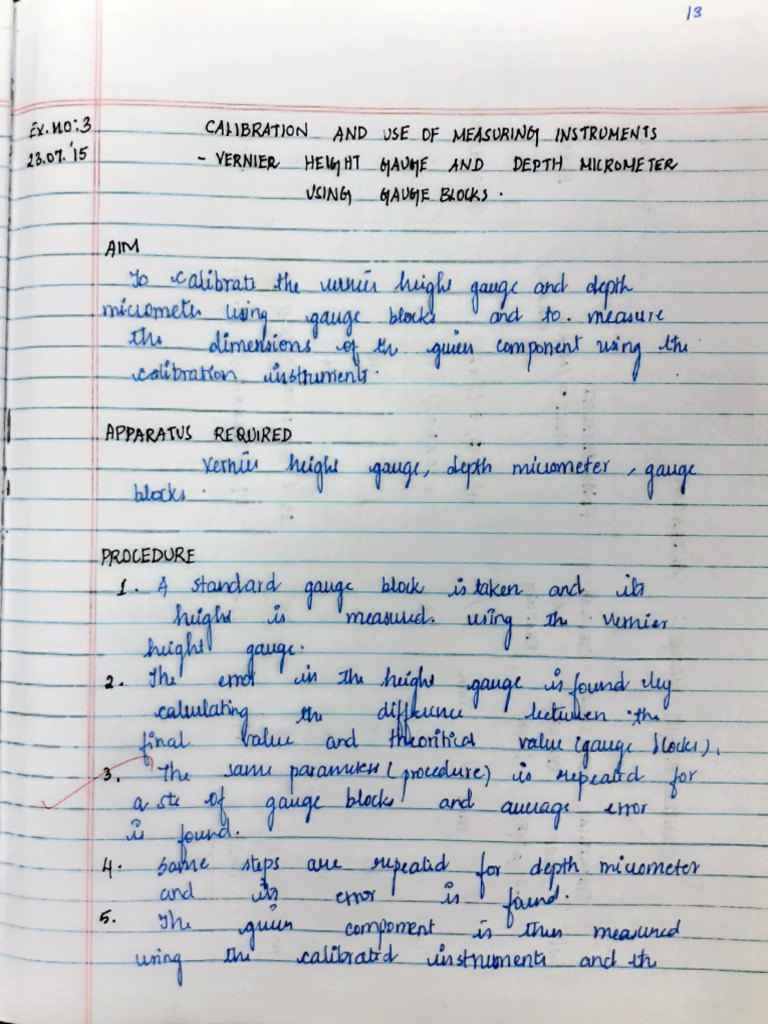 13
Ex.no:3 CALIBRATION AND USE OF MEASURING INSTRUMENTS
23.07.'15 - VERNIER HEIGHT GAUGE AND DEPTH MICROMETER
USING GAUGE BLOCKS.
AIM
To calibrate the vernier height gauge and depth
micrometer using gauge blocks and to. measure
the dimensions of the given component using the
calibration instruments.
APPARATUS REQUIRED
Vernier height gauge, depth micrometer, gauge
blocks.
PROCEDURE
1. A standard gauge block is taken and its
height is measured. using the vernier
height gauge.
2. The error in the height gauge is found by
calculating the difference between the
final value and theoritical value (gauge blocks).
3. The same parameters (procedure) is repeated for
a set of gauge blocks and average error
is found.
4. Same steps are repeated for depth micrometer
and its error is found.
5. The given component is then measured
using the calibrated instruments and the